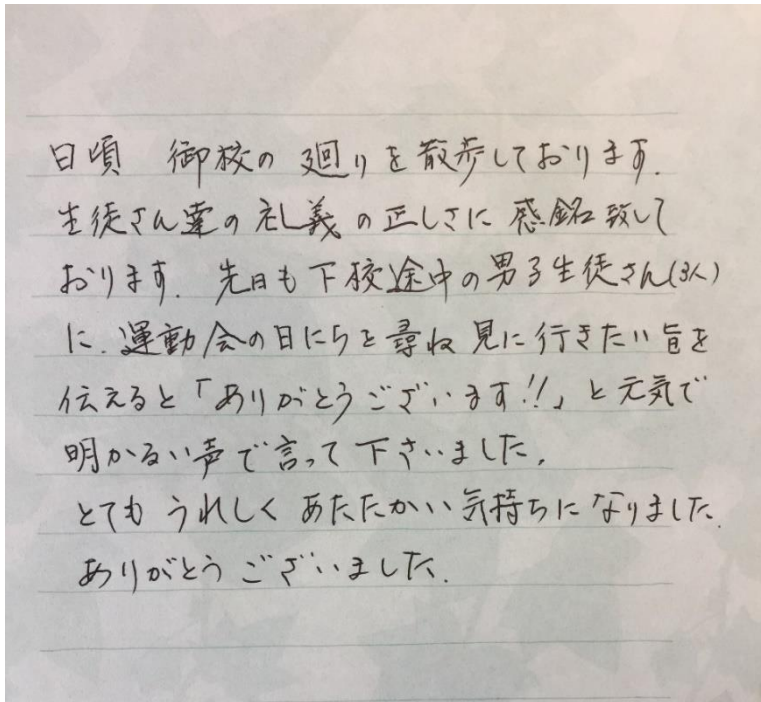 日頃 御校の廻りを散歩しております.
生徒さん達の礼義の正しさに感銘致して
おります. 先日も下校途中の男子生徒さん(3人)
に. 運動会の日にちを尋ね見に行きたい旨を
伝えると「ありがとうございます!!」と元気で
明かるい声で言って下さいました.
とてもうれしくあたたかい気持ちになりました.
ありがとうございました.